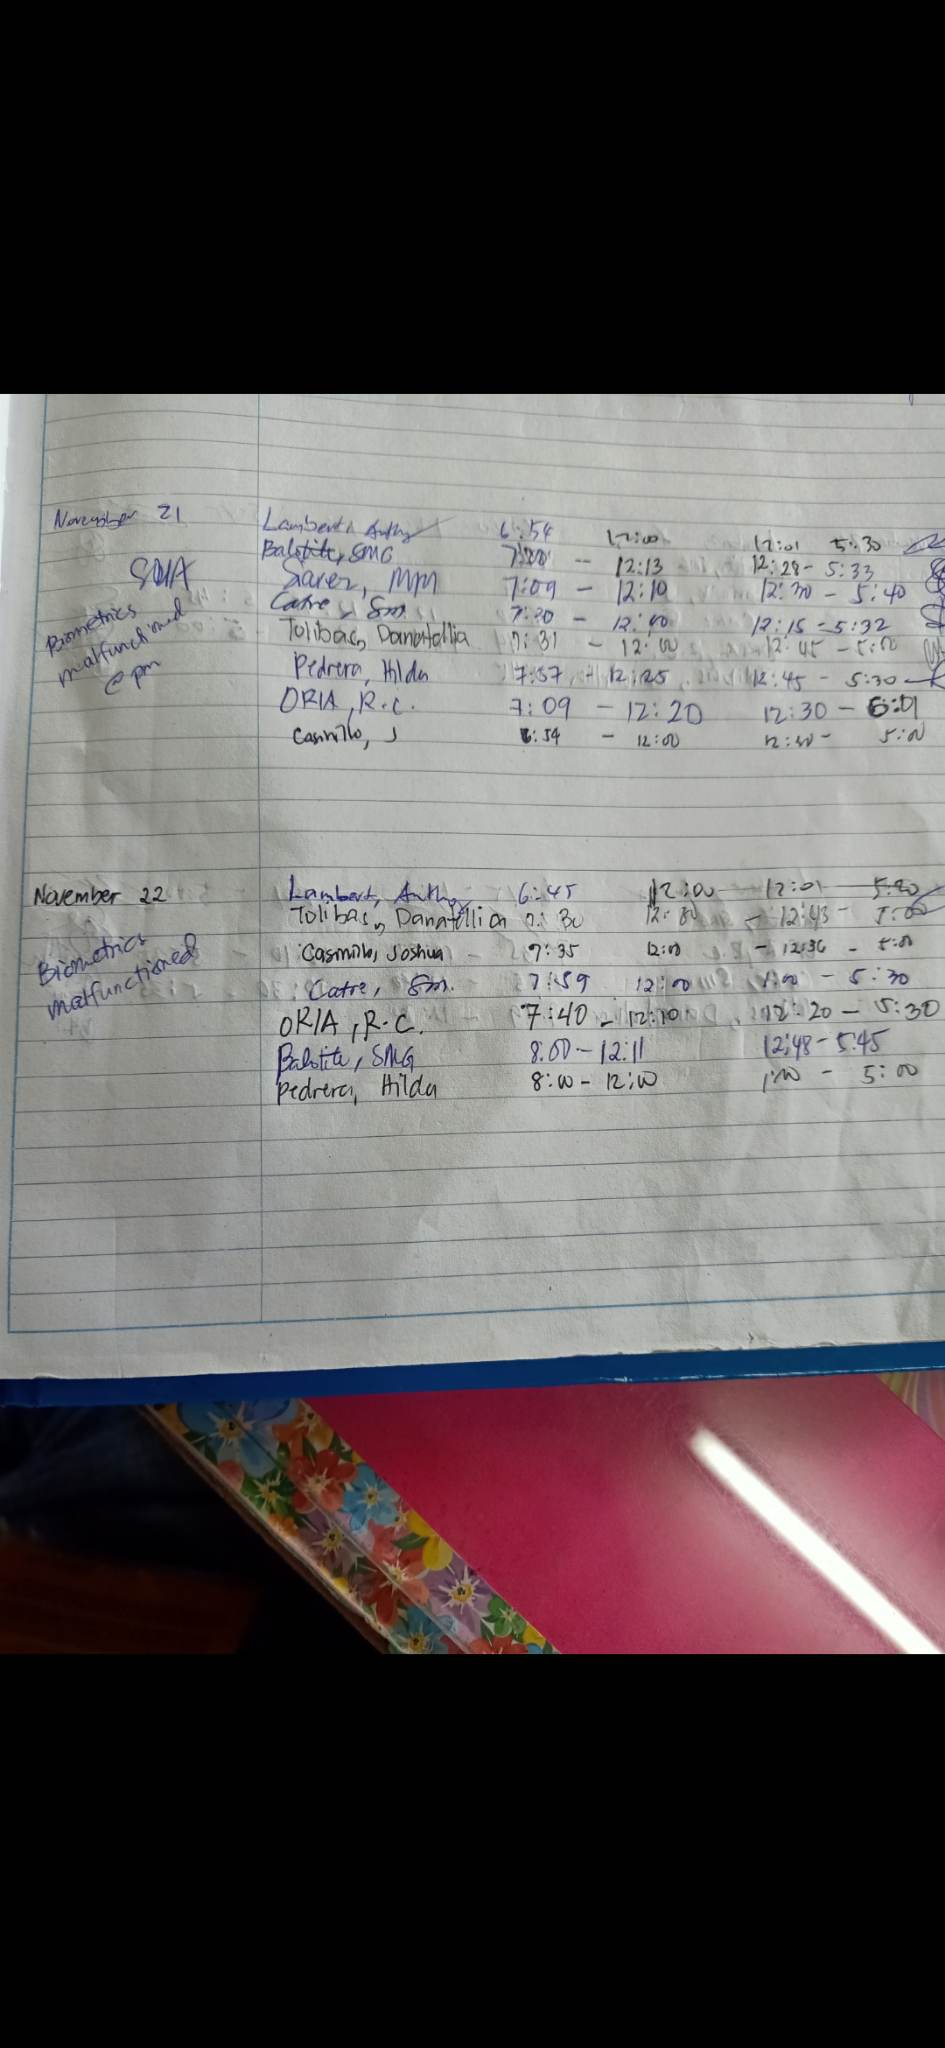 November 21
SDIA
Biometrics
malfunctioned
@ pm
Lambert, Anthy 6:54 12:00 12:01 5:30
Balotite, SMG 12:13 12:28 - 5:33
MM 7:09 - 12:10 12:30 - 5:40
Catre, Sm. 7:20 - 12:40 12:15 - 5:32
Tolibas, Danatellia 7:31 - 12:00 12:45 - 5:00
Pedrera, Hilda 7:57 12:25 12:45 - 5:30
ORIA, R.C. 7:09 - 12:20 12:30 -
Casmillo, J 6:54 - 12:00 12:30 - 5:00
November 22
Biometrics
malfunctioned
Lambert, Anthy 6:45 12:00 12:01 5:30
Tolibas, Danatellian 7:30 12:30 - 12:43 - 5:00
Casmillo, Joshua 7:35 12:00 - 12:36 - 5:00
Catre, Sm. 7:59 12:00 1:00 - 5:30
ORIA, R.C. 7:40 - 12:10 12:20 - 5:30
Balotite, SMG 8:00 - 12:11 12:48 - 5:45
Pedrera, Hilda 8:00 - 12:00 1:00 - 5:00